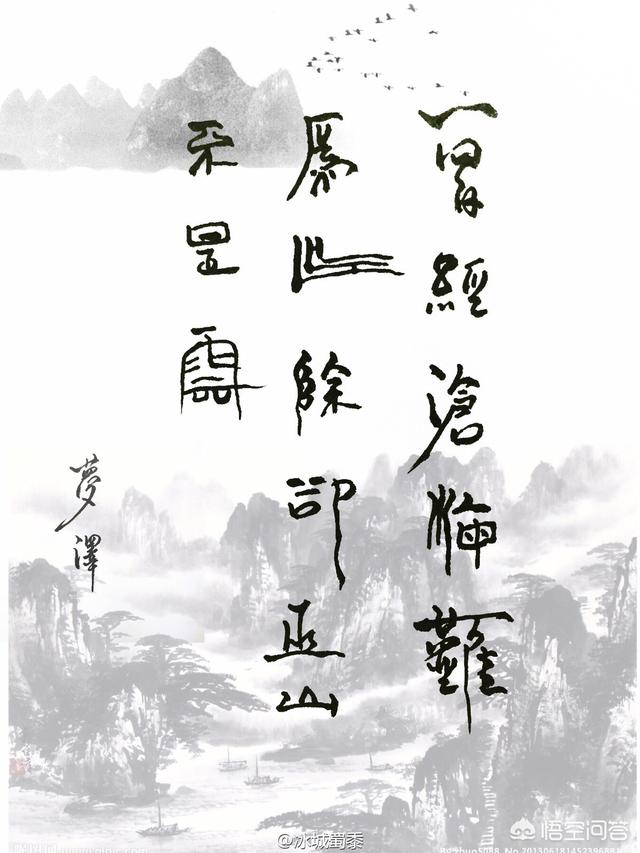 曾經滄海難
為水除卻巫山
不是雲
夢澤
@冰城蜀黍
悟空问答